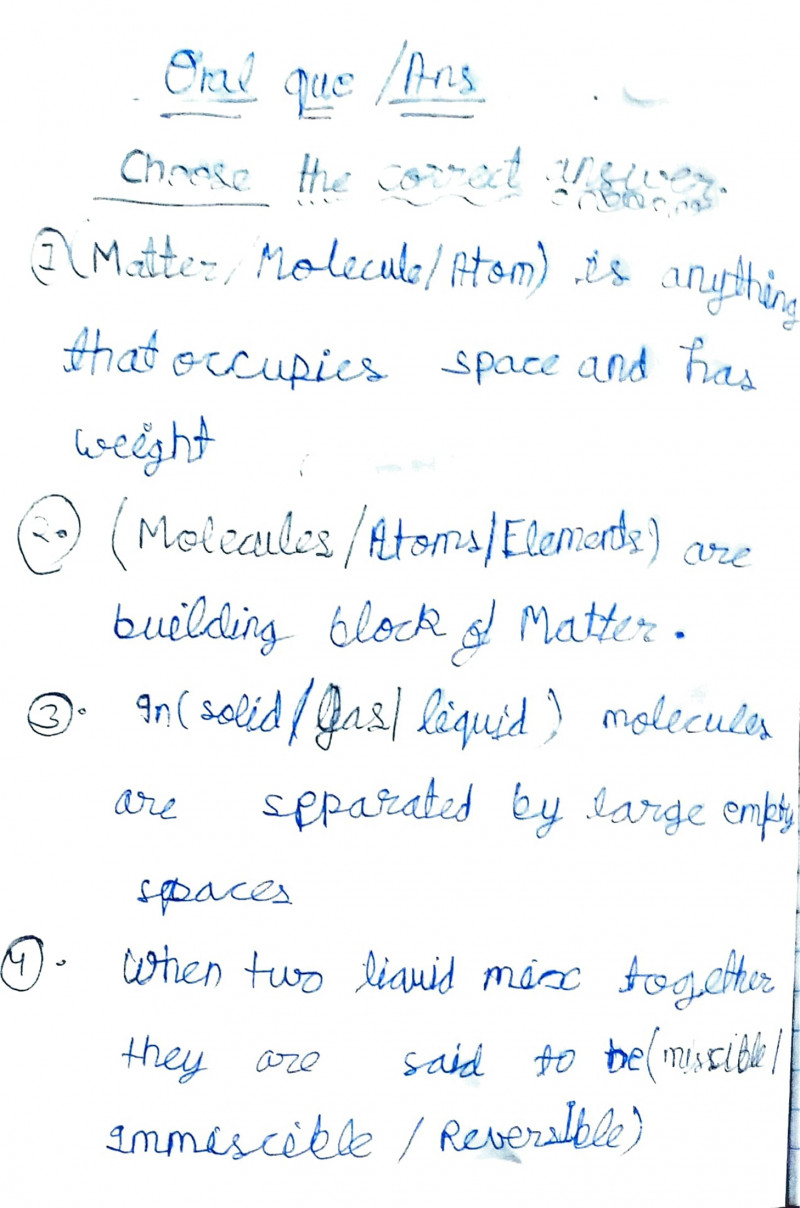 Oral que /Ans
Choose the correct answer.
① (Matter/Molecule/Atom) is anything
that occupies space and has
weight
2. (Molecules/Atoms/Elements) are
building block of Matter.
③. In (solid/gas/liquid) molecules
are spparated by large empty
spaces
④. When two liquid mix together
they are said to be (misscible/
Immiscible / Reversible)